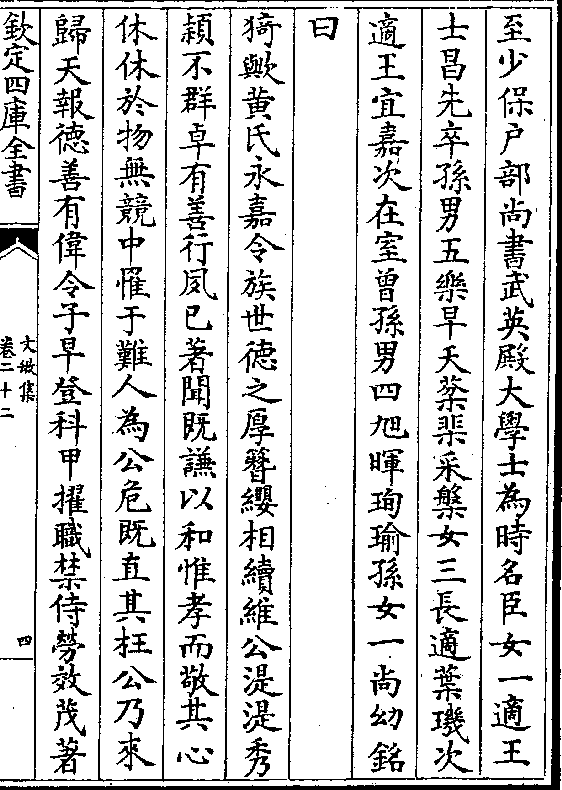 至少保戶部尚書武英殿大學士為時名臣女一適王
士昌先卒孫男五樂早夭蘂棐采槃女三長適葉璣次
適王宜嘉次在室曾孫男四旭暉珣瑜孫女一尚幼銘
曰
猗歟黃氏永嘉令族世德之厚簪纓相續維公湜湜秀
穎不群卓有善行夙已著聞既謙以和惟孝而敬其心
休休於物無競中罹于難人為公危既直其枉公乃來
歸天報德善有偉令子早登科甲擢職禁侍勞效茂著
欽定四庫全書
文敏集
卷二十二
四